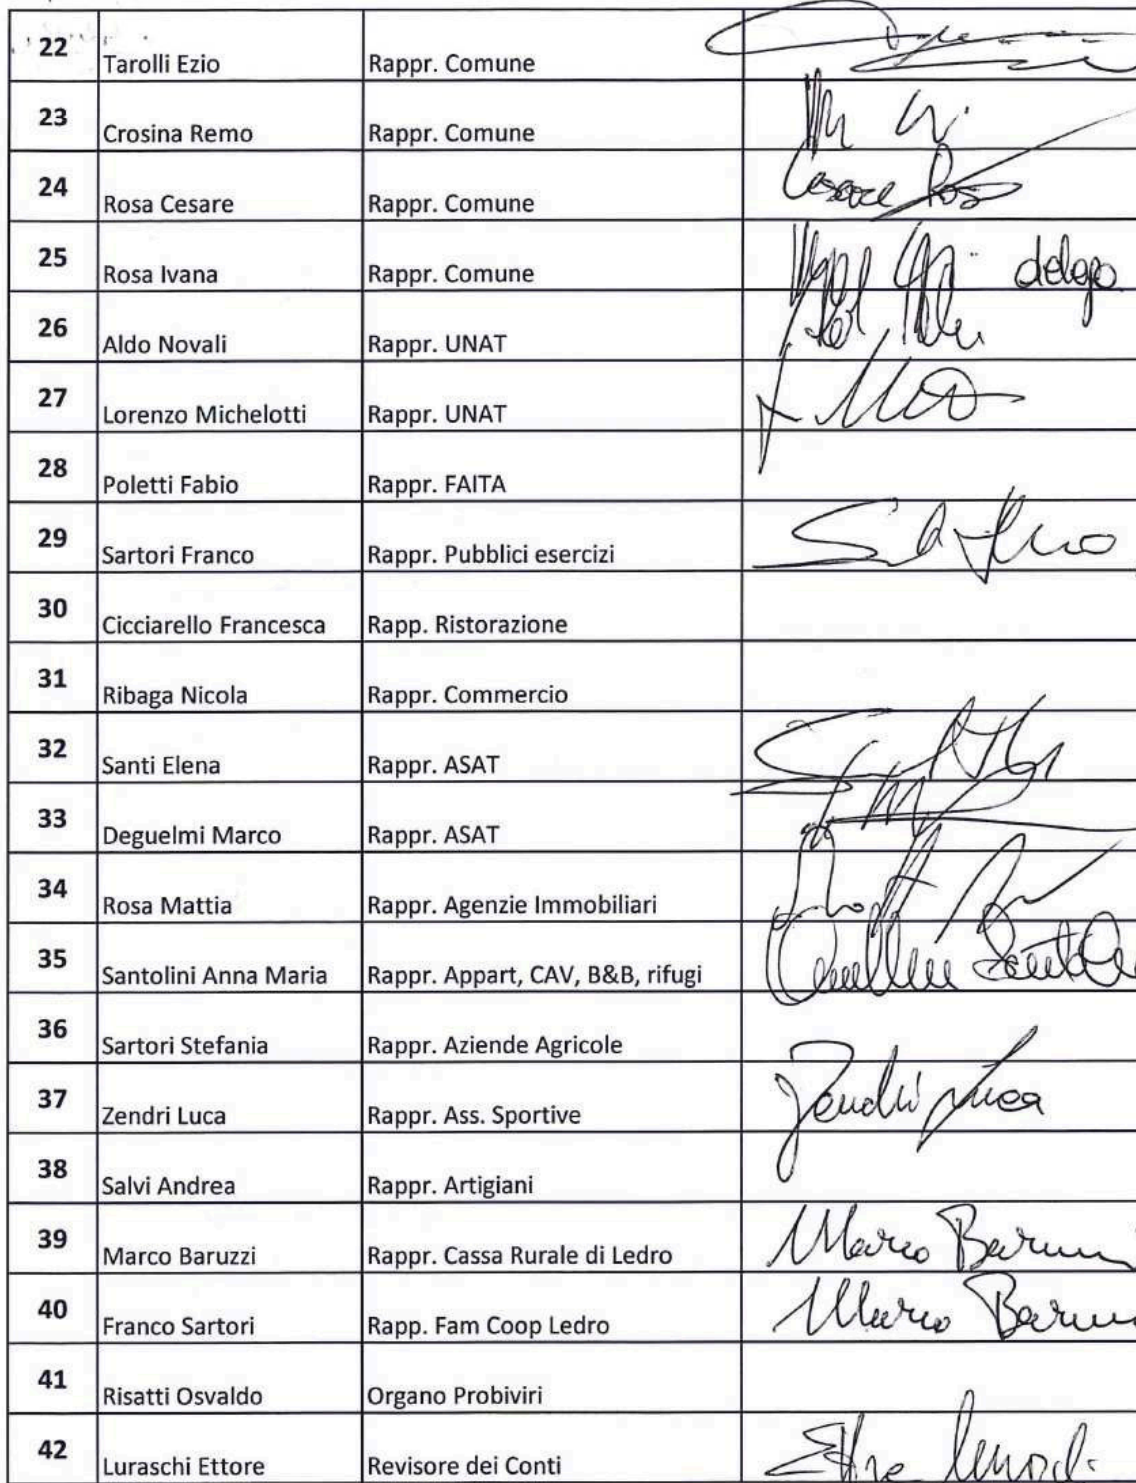 22 Tarolli Ezio Rappr. Comune
23 Crosina Remo Rappr. Comune
24 Rosa Cesare Rappr. Comune Cesare Rosa
25 Rosa Ivana Rappr. Comune
26 Aldo Novali Rappr. UNAT
27 Lorenzo Michelotti Rappr. UNAT
28 Poletti Fabio Rappr. FAITA
29 Sartori Franco Rappr. Pubblici esercizi
30 Cicciarello Francesca Rapp. Ristorazione
31 Ribaga Nicola Rappr. Commercio
32 Santi Elena Rappr. ASAT
33 Deguelmi Marco Rappr. ASAT
34 Rosa Mattia Rappr. Agenzie Immobiliari
35 Santolini Anna Maria Rappr. Appart, CAV, B&B, rifugi
36 Sartori Stefania Rappr. Aziende Agricole
37 Zendri Luca Rappr. Ass. Sportive Zendri Luca
38 Salvi Andrea Rappr. Artigiani
39 Marco Baruzzi Rappr. Cassa Rurale di Ledro Marco
40 Franco Sartori Rapp. Fam Coop Ledro Marco
41 Risatti Osvaldo Organo Probiviri
42 Luraschi Ettore Revisore dei Conti